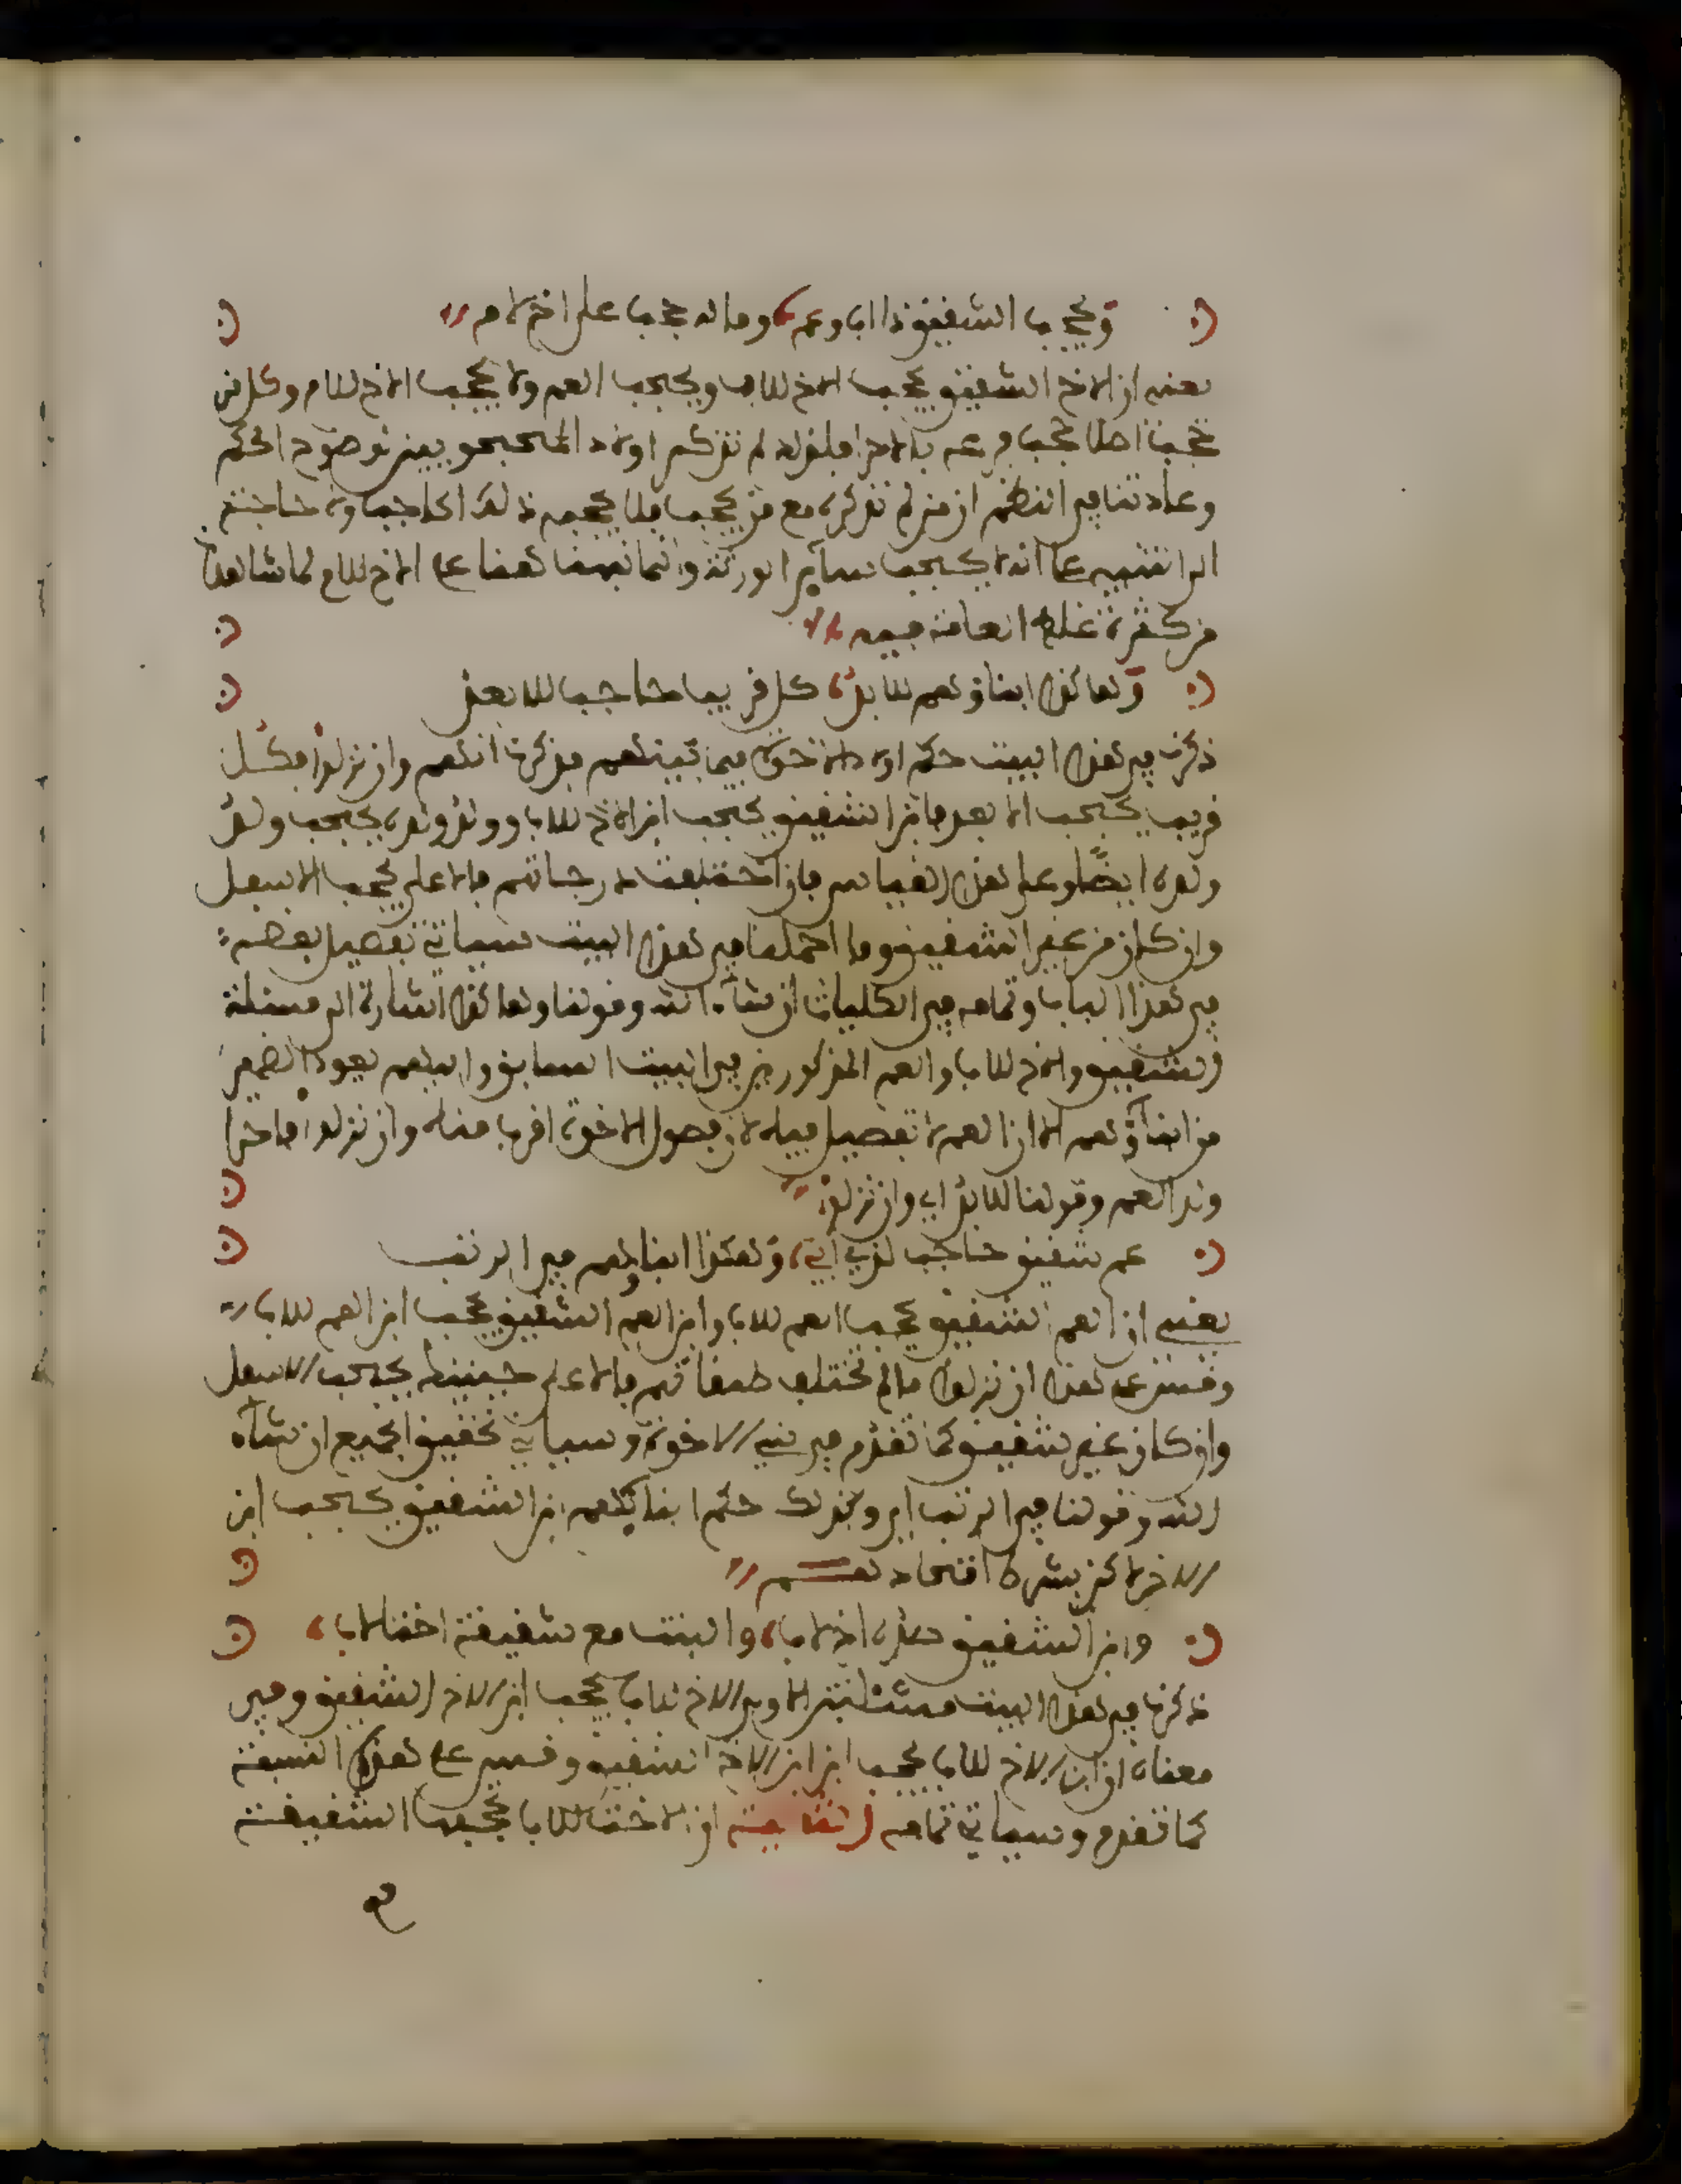 ويحجب الشقيق ذا اب وعم وما له حجب على اخ لام
يعني ان الاخ الشقيق يحجب الاخ للاب ويحجب العم ولا يحجب الاخ للام وكل من
حجب اصلا حجب فرعه بالاحرا فلهذا لم نذكر اولاد المحجوبين لوضوح الحكم
وعادتنا في النظم ان من لم نذكره مع من يحجب فلا يحجبه ذلك الحاجب ولا حاجة
الى التنبيه على انه لا يحجب سائر الورثة وانما نبهنا هنا على الاخ للام لما شاهدنا
من كثرة غلط العامة فيه
وهاكذا ابناؤهم للابد كل قريب حاجب للابعد
ذكرت في هذا البيت حكم اولاد الاخوة فيما بينهم فذكرنا انهم وان نزلوا فكل
قريب يحجب الابعد فابن الشقيق يحجب ابن الاخ للاب وولد ولده يحجب ولد
ولده ايضا وعلى هذا القياس فان اختلفت درجاتهم فالاعلى يحجب الاسفل
وان كان من غير الشقيق وما اجملنا في هذا البيت سياتي تفصيل بعضه
في هذا الباب وتمامه في الكليات ان شاء الله وقولنا وهاكذا اشارة الى مسئلة
الشقيق والاخ للاب والعم المذكورين في البيت السابق واليهم يعود الضمير
من ابناؤهم الا ان العم لا تفصيل فيه لان فصول الاخوة اقرب منه وان نزلوا فاحرا
ولد العم وقولنا للابد اي وان نزلوا
عم شقيق حاجب لذي اب وهكذا ابناؤهم في الرتب
يعني ان العم الشقيق يحجب العم للاب وابن العم الشقيق يحجب ابن العم للاب
وقس على هذا ان نزلوا ما لم تختلف طبقاتهم فالاعلى حينئذ يحجب الاسفل
وان كان غير شقيق كما تقدم في بني الاخوة وسياتي تحقيق الجميع ان شاء
الله وقولنا في الرتب اي وكذلك حكم ابنائهم ابن الشقيق يحجب ابن
الاخر لاكن بشرط اتحاد
وابن الشقيق اخ لاب والبنت مع شقيقة اخت لاب
ذكرنا في هذا البيت مسئلتين الاولى الاخ للاب يحجب ابن الاخ الشقيق وفي
معناه ان ابن الاخ للاب يحجب ابن ابن الاخ الشقيق وقس على هذه النسبة
كما تقدم وسياتي تمامه الثانية ان الاخت للاب تحجبها الشقيقة